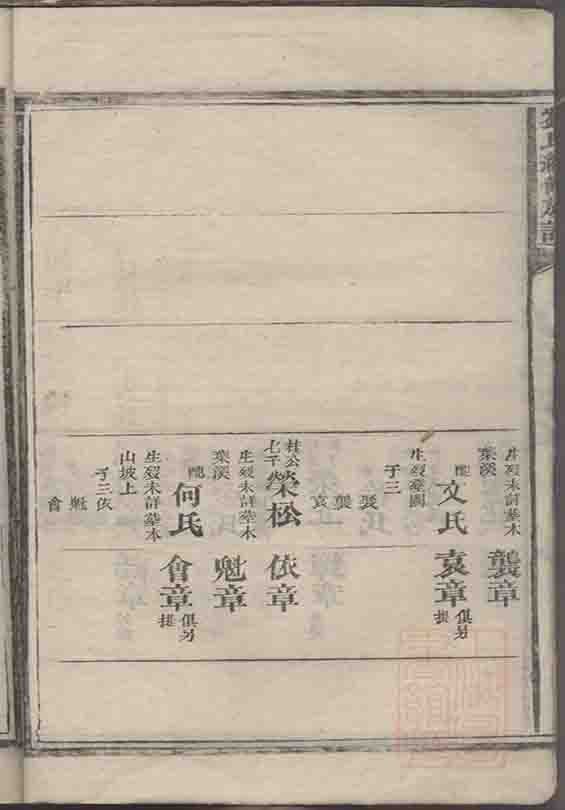 生歿未詳墓木
葉溪
配文氏
生歿墓圖
子三
襲
袁
桂公
七子
榮松
生歿未詳墓木
葉溪
配何氏
生歿未詳墓木
山坡上
子三依
魁
會
襲章
袁章
俱另
提
依章
魁章
會章
俱另
提